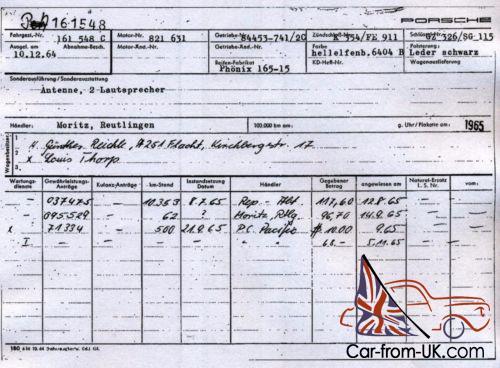 16·1548 PORSCHE
Fahrgest.-Nr. 161 548 C Motor-Nr. 821 631 Getriebe-Nr. 84453-741/2C Zündschloß-Nr. K 354/FE 911 Schlüssel-Nr. GZ 326/SG 115
Ausgel. am 10.12.64 Abnahme-Besch. Motor-Änd.-Nr. Getriebe-Änd.-Nr. Farbe hellelfenb.6404 B Polsterung/Farbe Leder schwarz
Reifen-Fabrikat Phönix 165-15 KD-Heft-Nr. Wagenauslieferung
Sonderausführung / Sonderausstattung
Antenne, 2 Lautsprecher
Händler: Moritz, Reutlingen 100.000 km am: g. Uhr/Plakette am: 1965
Wagenbesitzer
Günther Reichle, 7251 Flacht, Kirchbergstr. 17
x Louis Thorp
Wartungs-dienste Gewährleistungs-Anträge Kulanz-Anträge km-Stand Instandsetzung Datum Händler Gegebener Betrag angewiesen am Natural-Ersatz L. S. Nr. vom:
– 037475 10.363 8.7.65 Rep. - Abt. 117,60 12.8.65
– 095529 – 62 ? Moritz, Rtlg. 96,70 14.9.65
x 71334 500 21.9.65 P.C. Pacific $ 10.00 9.65
I – 6.8.– 5.11.65
Car-from-UK.com